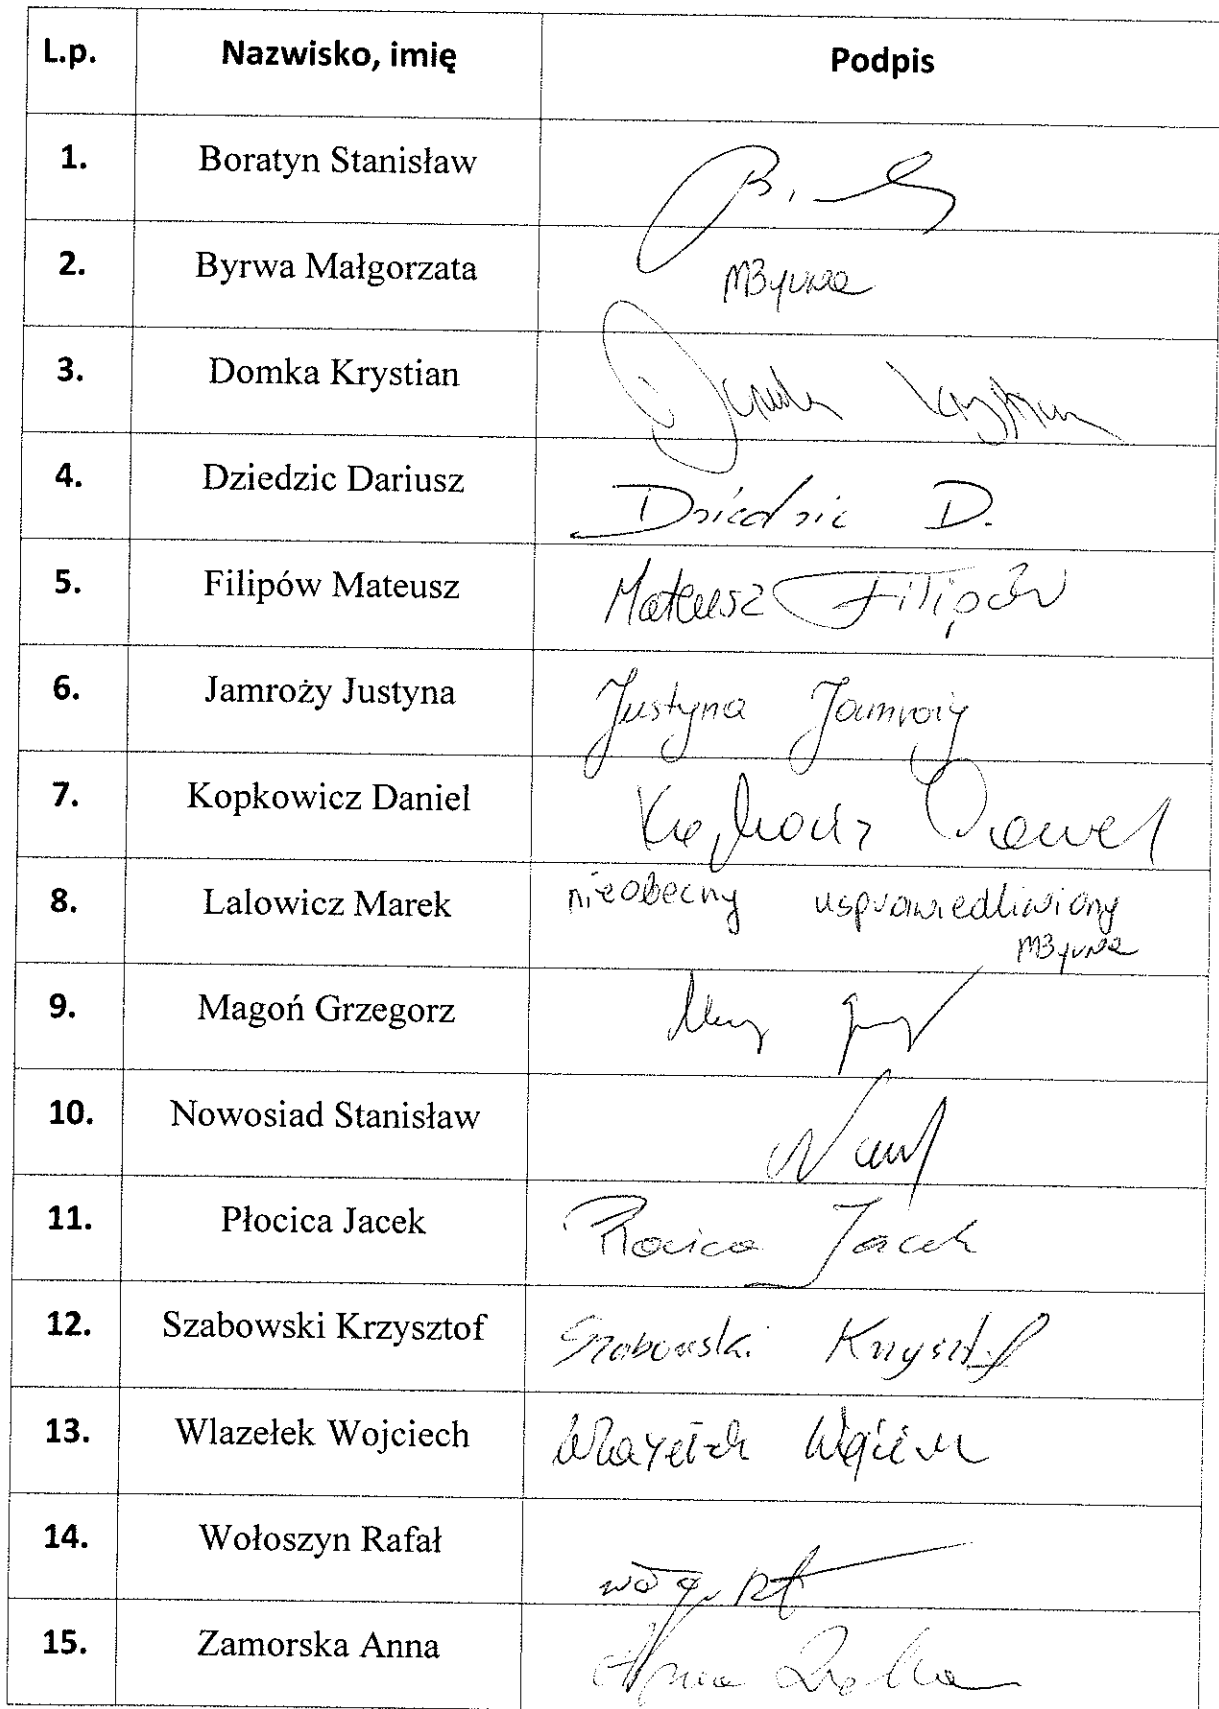 L.p. Nazwisko, imię Podpis
1. Boratyn Stanisław B.
2. Byrwa Małgorzata MByrwa
3. Domka Krystian Krystian
4. Dziedzic Dariusz Dziedzic D.
5. Filipów Mateusz Mateusz Filipów
6. Jamroży Justyna Justyna Jamroży
7. Kopkowicz Daniel
8. Lalowicz Marek nieobecny usprawiedliwiony
MByrwa
9. Magoń Grzegorz
10. Nowosiad Stanisław
11. Płocica Jacek Płocica Jacek
12. Szabowski Krzysztof Szabowski Krzysztof
13. Wlazełek Wojciech Wlazełek Wojciech
14. Wołoszyn Rafał
15. Zamorska Anna Anna